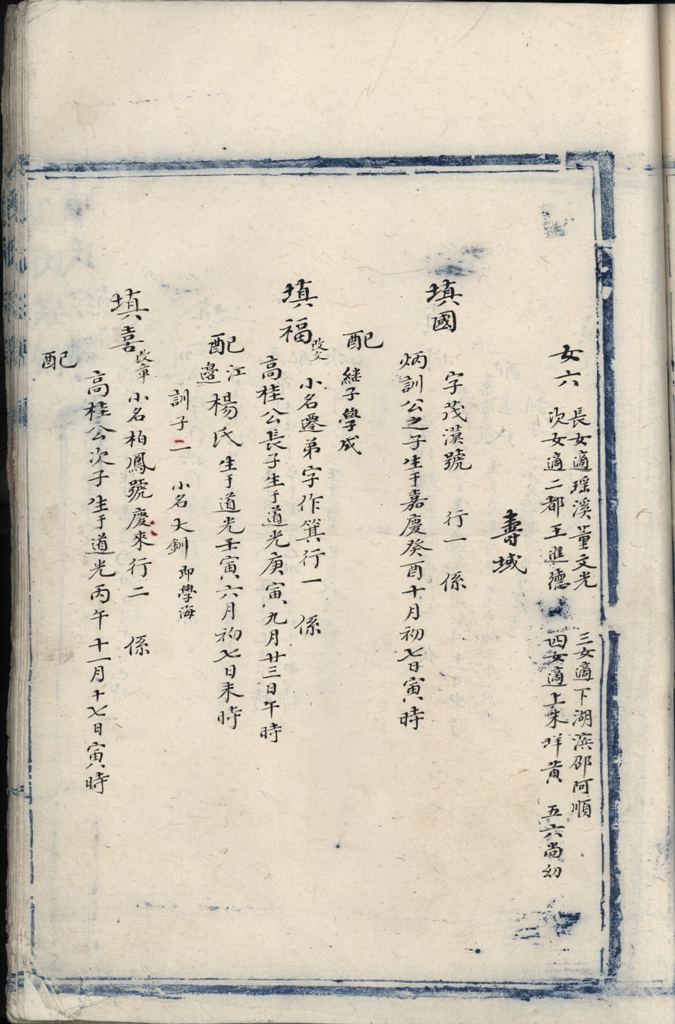 女六 長女適瑶溪董文光 三女適下湖濱邵阿順
次女適二都王進德 四女適上朱祥黄 五六尚幼
壽域
填國 字茂漢號 行一 係
炳訓公之子生于嘉慶癸酉十月初七日寅時
配 継子學成
填福改文 小名遷弟字作箕行一 係
高桂公長子生于道光庚寅九月廿三日午時
配江邊楊氏生于道光壬寅六月初七日未時
訓子二 小名大釧 即學海
填喜改章 小名柏鳳號慶來行二 係
高桂公次子生于道光丙午十一月十七日寅時
配